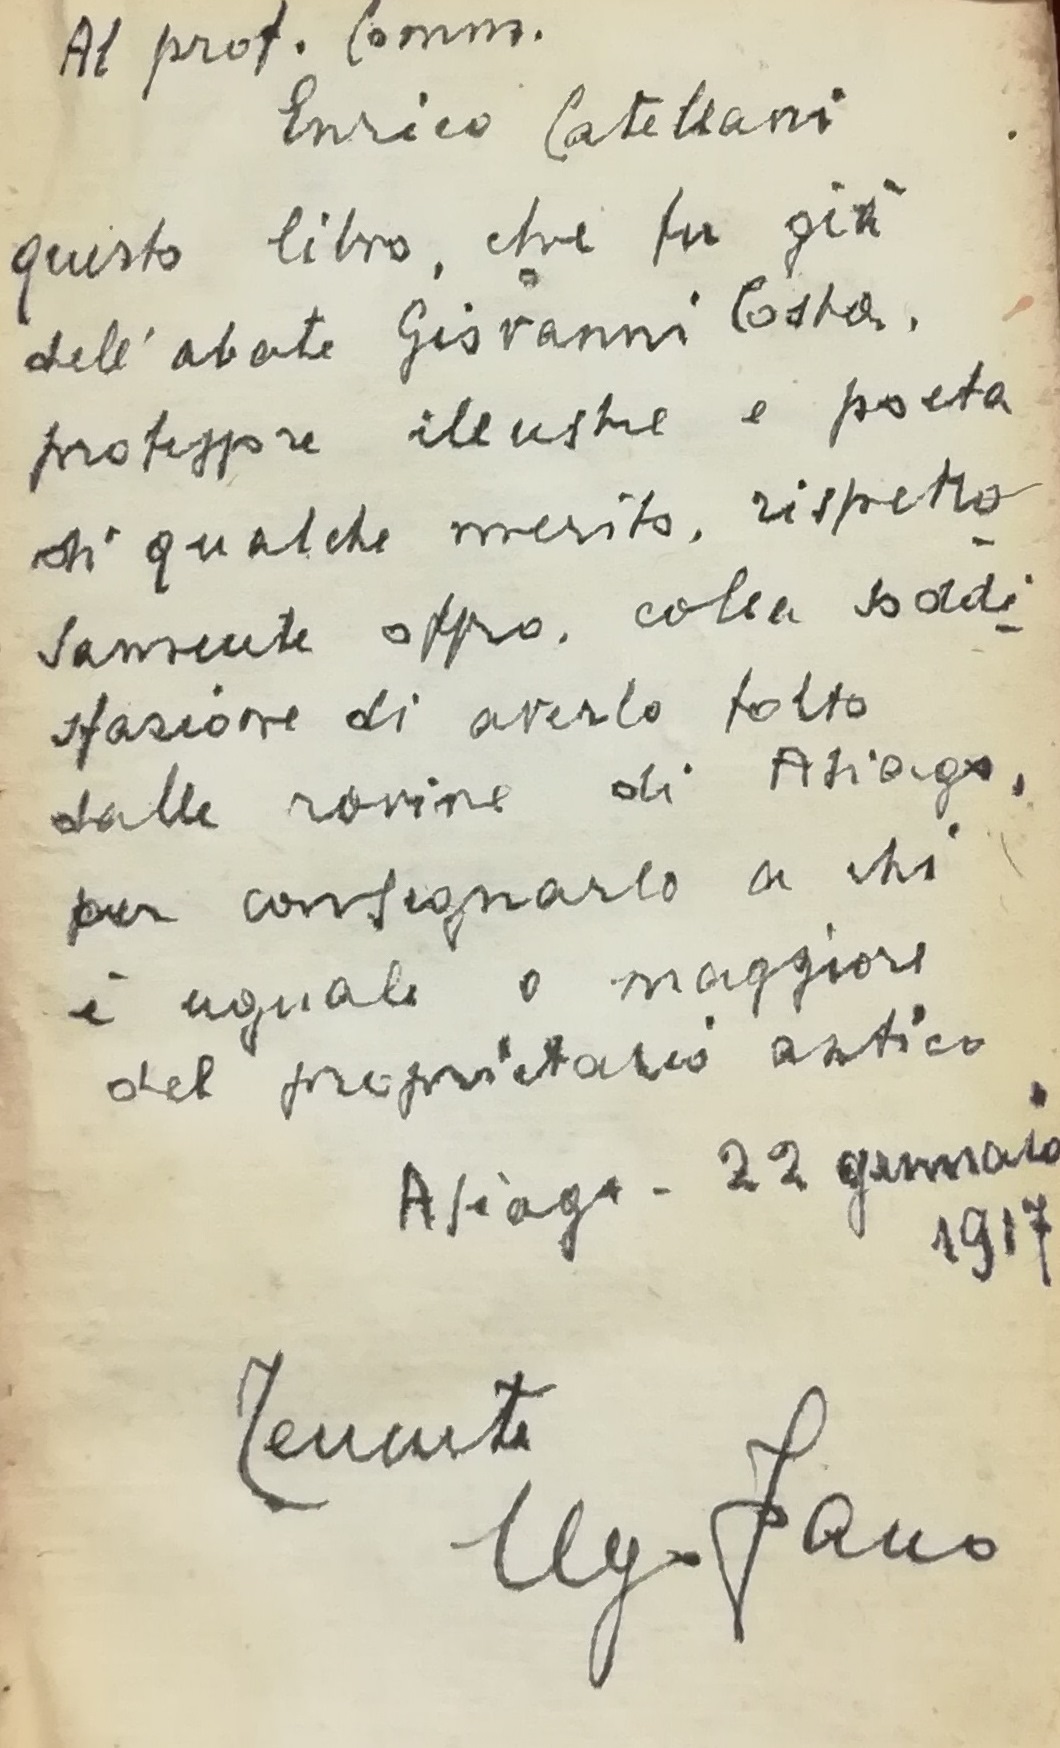 Al prof. Comm.
Enrico Catellani
questo libro, che fu già
dell'abate Giovanni Costa,
professore illustre e poeta
di qualche merito, rispetto-
samente offro, colla soddi-
sfazione di averlo tolto
dalle rovine di Asiago,
per consegnarlo a chi
è uguale o maggiore
del proprietario antico
Asiago - 22 gennaio
1917
Tenente
Ugo Fano